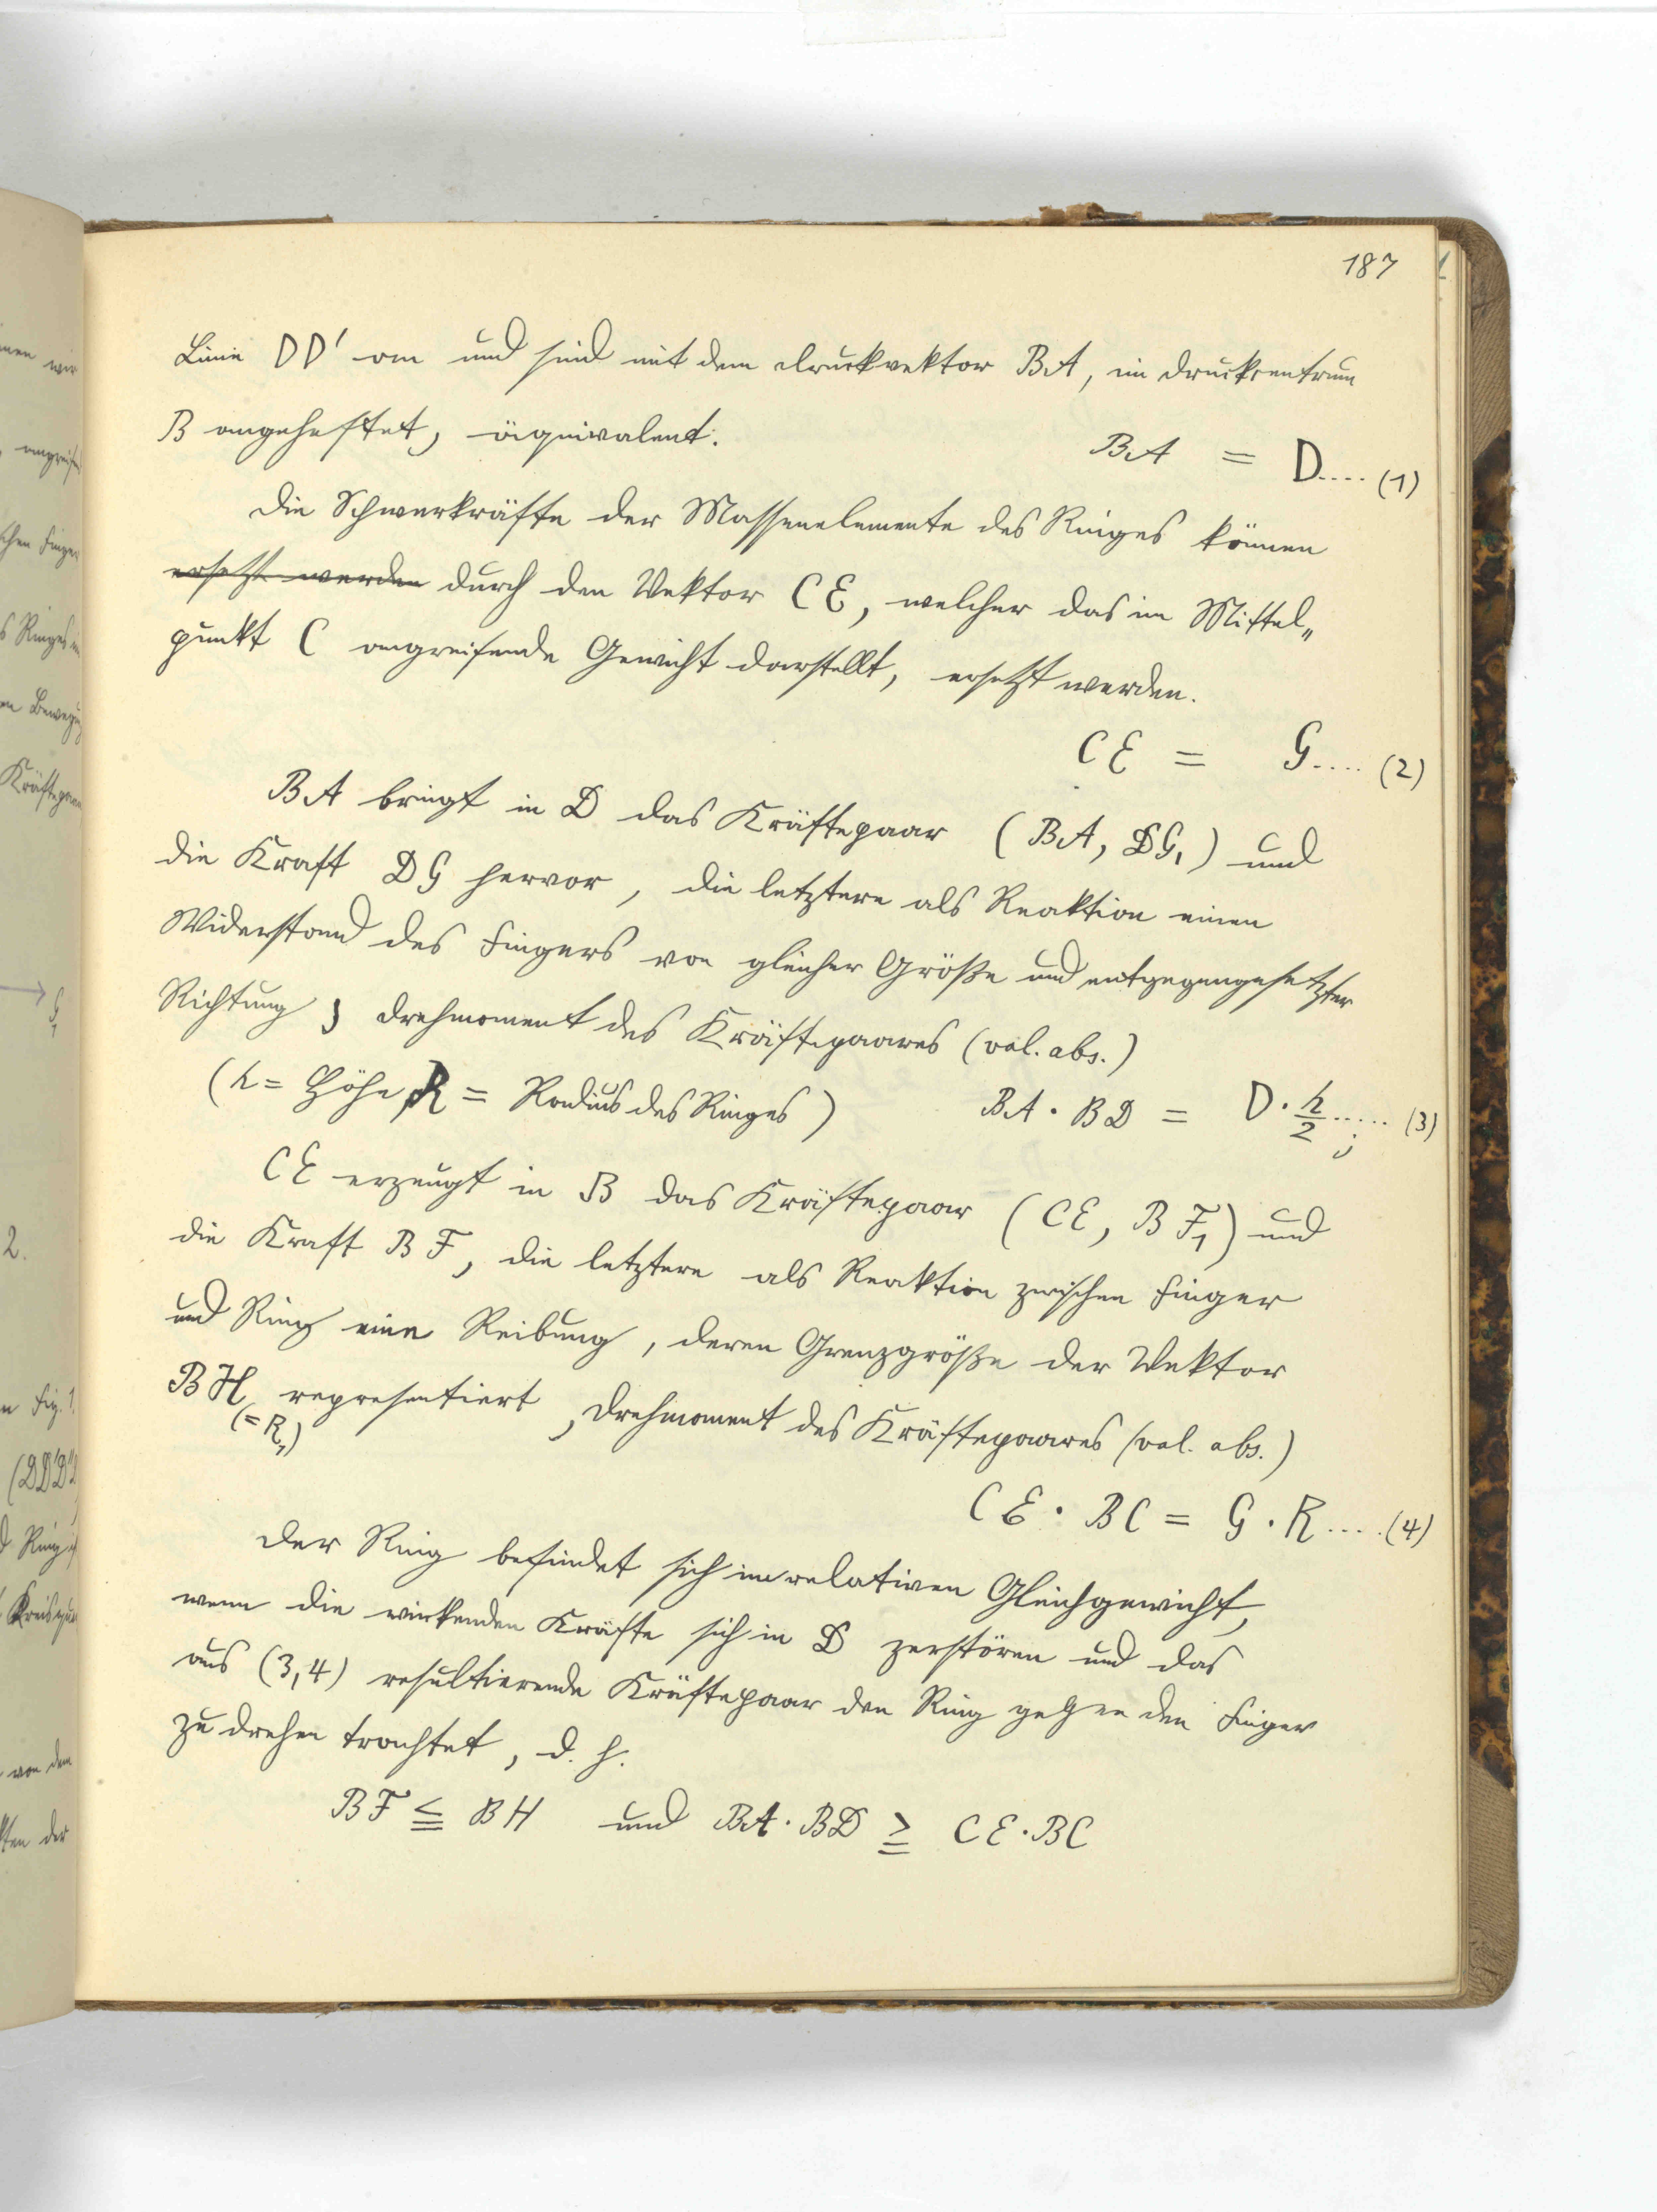 187
Linie DD' an und sind mit dem Druckvektor BA, im Druckcentrum
B angeheftet, äquivalent.
BA = D.... (1)
Die Schwerkräfte der Massenelemente des Ringes können
ersetzt werden durch den Vektor CE, welcher das im Mittel„
punkt C angreifende Gewicht darstellt, ersetzt werden.
CE = G.... (2)
BA bringt in D das Kräftepaar (BA, DG₁) und
die Kraft DG hervor, die letztere als Reaktion einen
Widerstand des Fingers von gleicher Größe und entgegengesetzter
Richtung; Drehmoment des Kräftepaares (val. abs.)
(h = Höhe, R = Radius des Ringes) BA · BD = D · h/2 ..... (3)
;
CE erzeugt in B das Kräftepaar (CE, BF₁) und
die Kraft BF, die letztere als Reaktion zwischen Finger
und Ring eine Reibung, deren Grenzgröße der Vektor
BH representiert, Drehmoment des Kräftepaares (val. abs.)
(=R₁)
CE · BC = G · R .... (4)
Der Ring befindet sich im relativen Gleichgewicht,
wenn die wirkenden Kräfte sich in D zerstören und das
aus (3,4) resultierende Kräftepaar den Ring gegen den Finger
zu drehen trachtet, d. h.
BF ≦ BH und BA · BD ≧ CE · BC